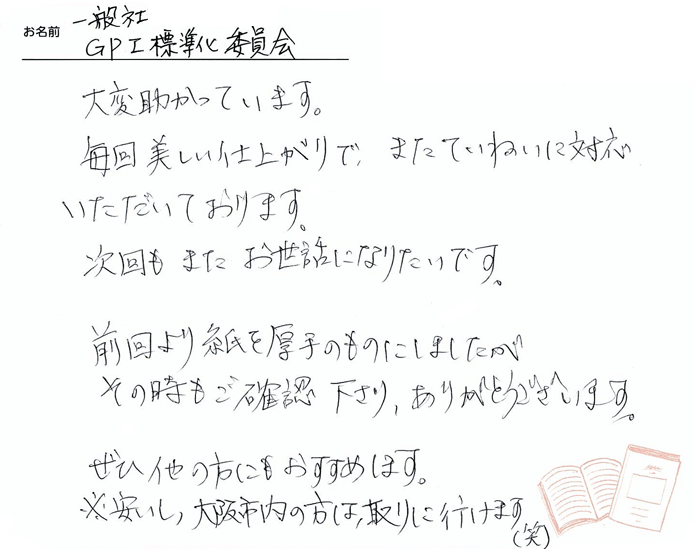 お名前 一般社
GPI標準化委員会
大変助かっています。
毎回美しい仕上がりで、またていねいに対応
いただいております。
次回もまたお世話になりたいです。
前回より紙を厚手のものにしましたが
その時もご確認下さり、ありがとうございます。
ぜひ他の方にもおすすめします。
※安いし、大阪市内の方は、取りに行けます
(笑)